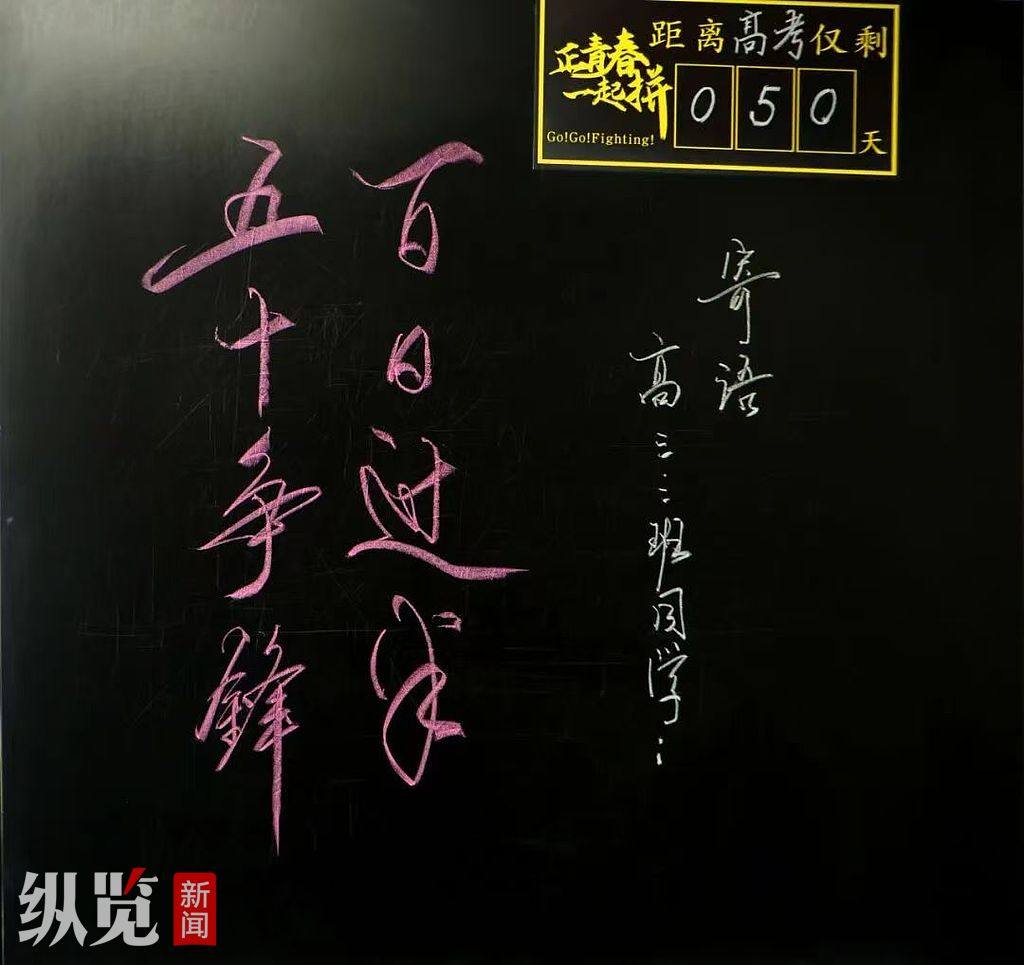 正青春
一起拼
Go!Go!Fighting!
距离高考仅剩
050天
寄语
高三.二班同学:
百日过半
五十争鋒
纵览
新闻